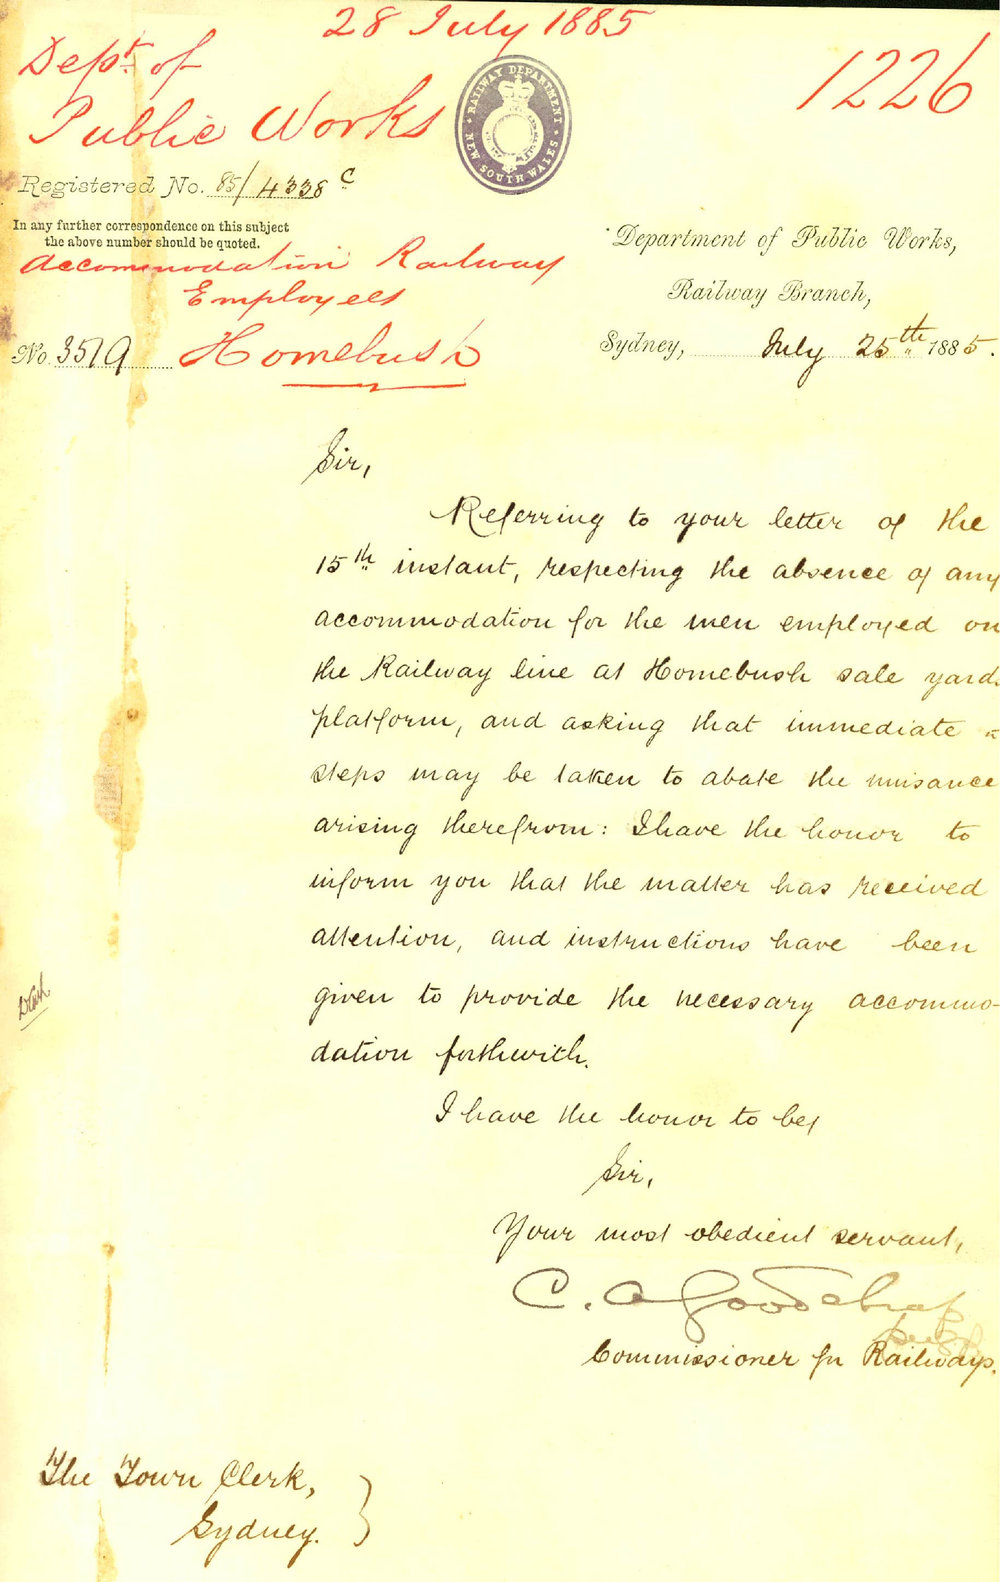 28 July 1885
Dept. of
Public Works
1226
RAILWAY DEPARTMENT
NEW SOUTH WALES
Registered No. 85/4338 C
In any further correspondence on this subject
the above number should be quoted.
Accommodation Railway
Employees
No. 3519 Homebush
Department of Public Works,
Railway Branch,
Sydney, July 25th 1885.
Sir,
Referring to your letter of the
15th instant, respecting the absence of any
accommodation for the men employed on
the Railway line at Homebush sale yards
platform, and asking that immediate
steps may be taken to abate the nuisance
arising therefrom: I have the honor to
inform you that the matter has received
attention, and instructions have been
given to provide the necessary accommo-
dation forthwith.
I have the honor to be,
Sir,
Your most obedient servant,
C. A. Goodchap
Commissioner for Railways.
The Town Clerk,
Sydney.